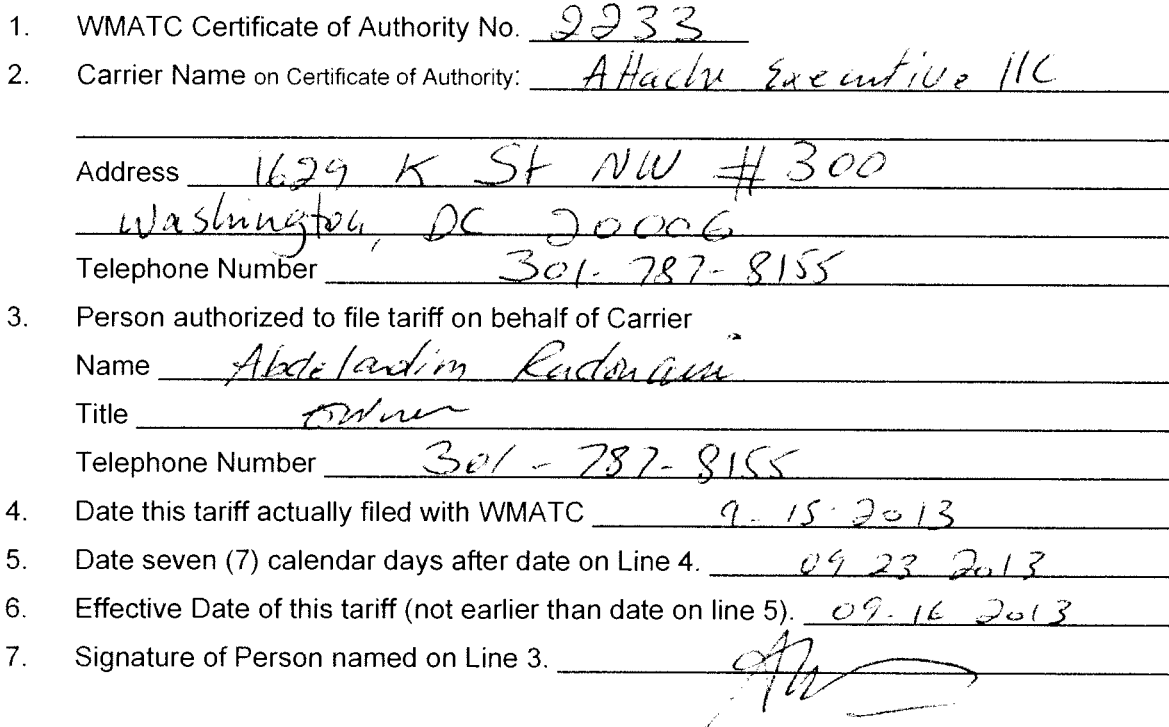 1. WMATC Certificate of Authority No. 2233
2. Carrier Name on Certificate of Authority: Attache Executive llC
Address 1629 K St NW # 300
Washington, DC 20006
Telephone Number 301-787-8155
3. Person authorized to file tariff on behalf of Carrier
Name Abdeladim
Title owner
Telephone Number 301-787-8155
4. Date this tariff actually filed with WMATC 9-15-2013
5. Date seven (7) calendar days after date on Line 4. 09 23 2013
6. Effective Date of this tariff (not earlier than date on line 5). 09-16 2013
7. Signature of Person named on Line 3.